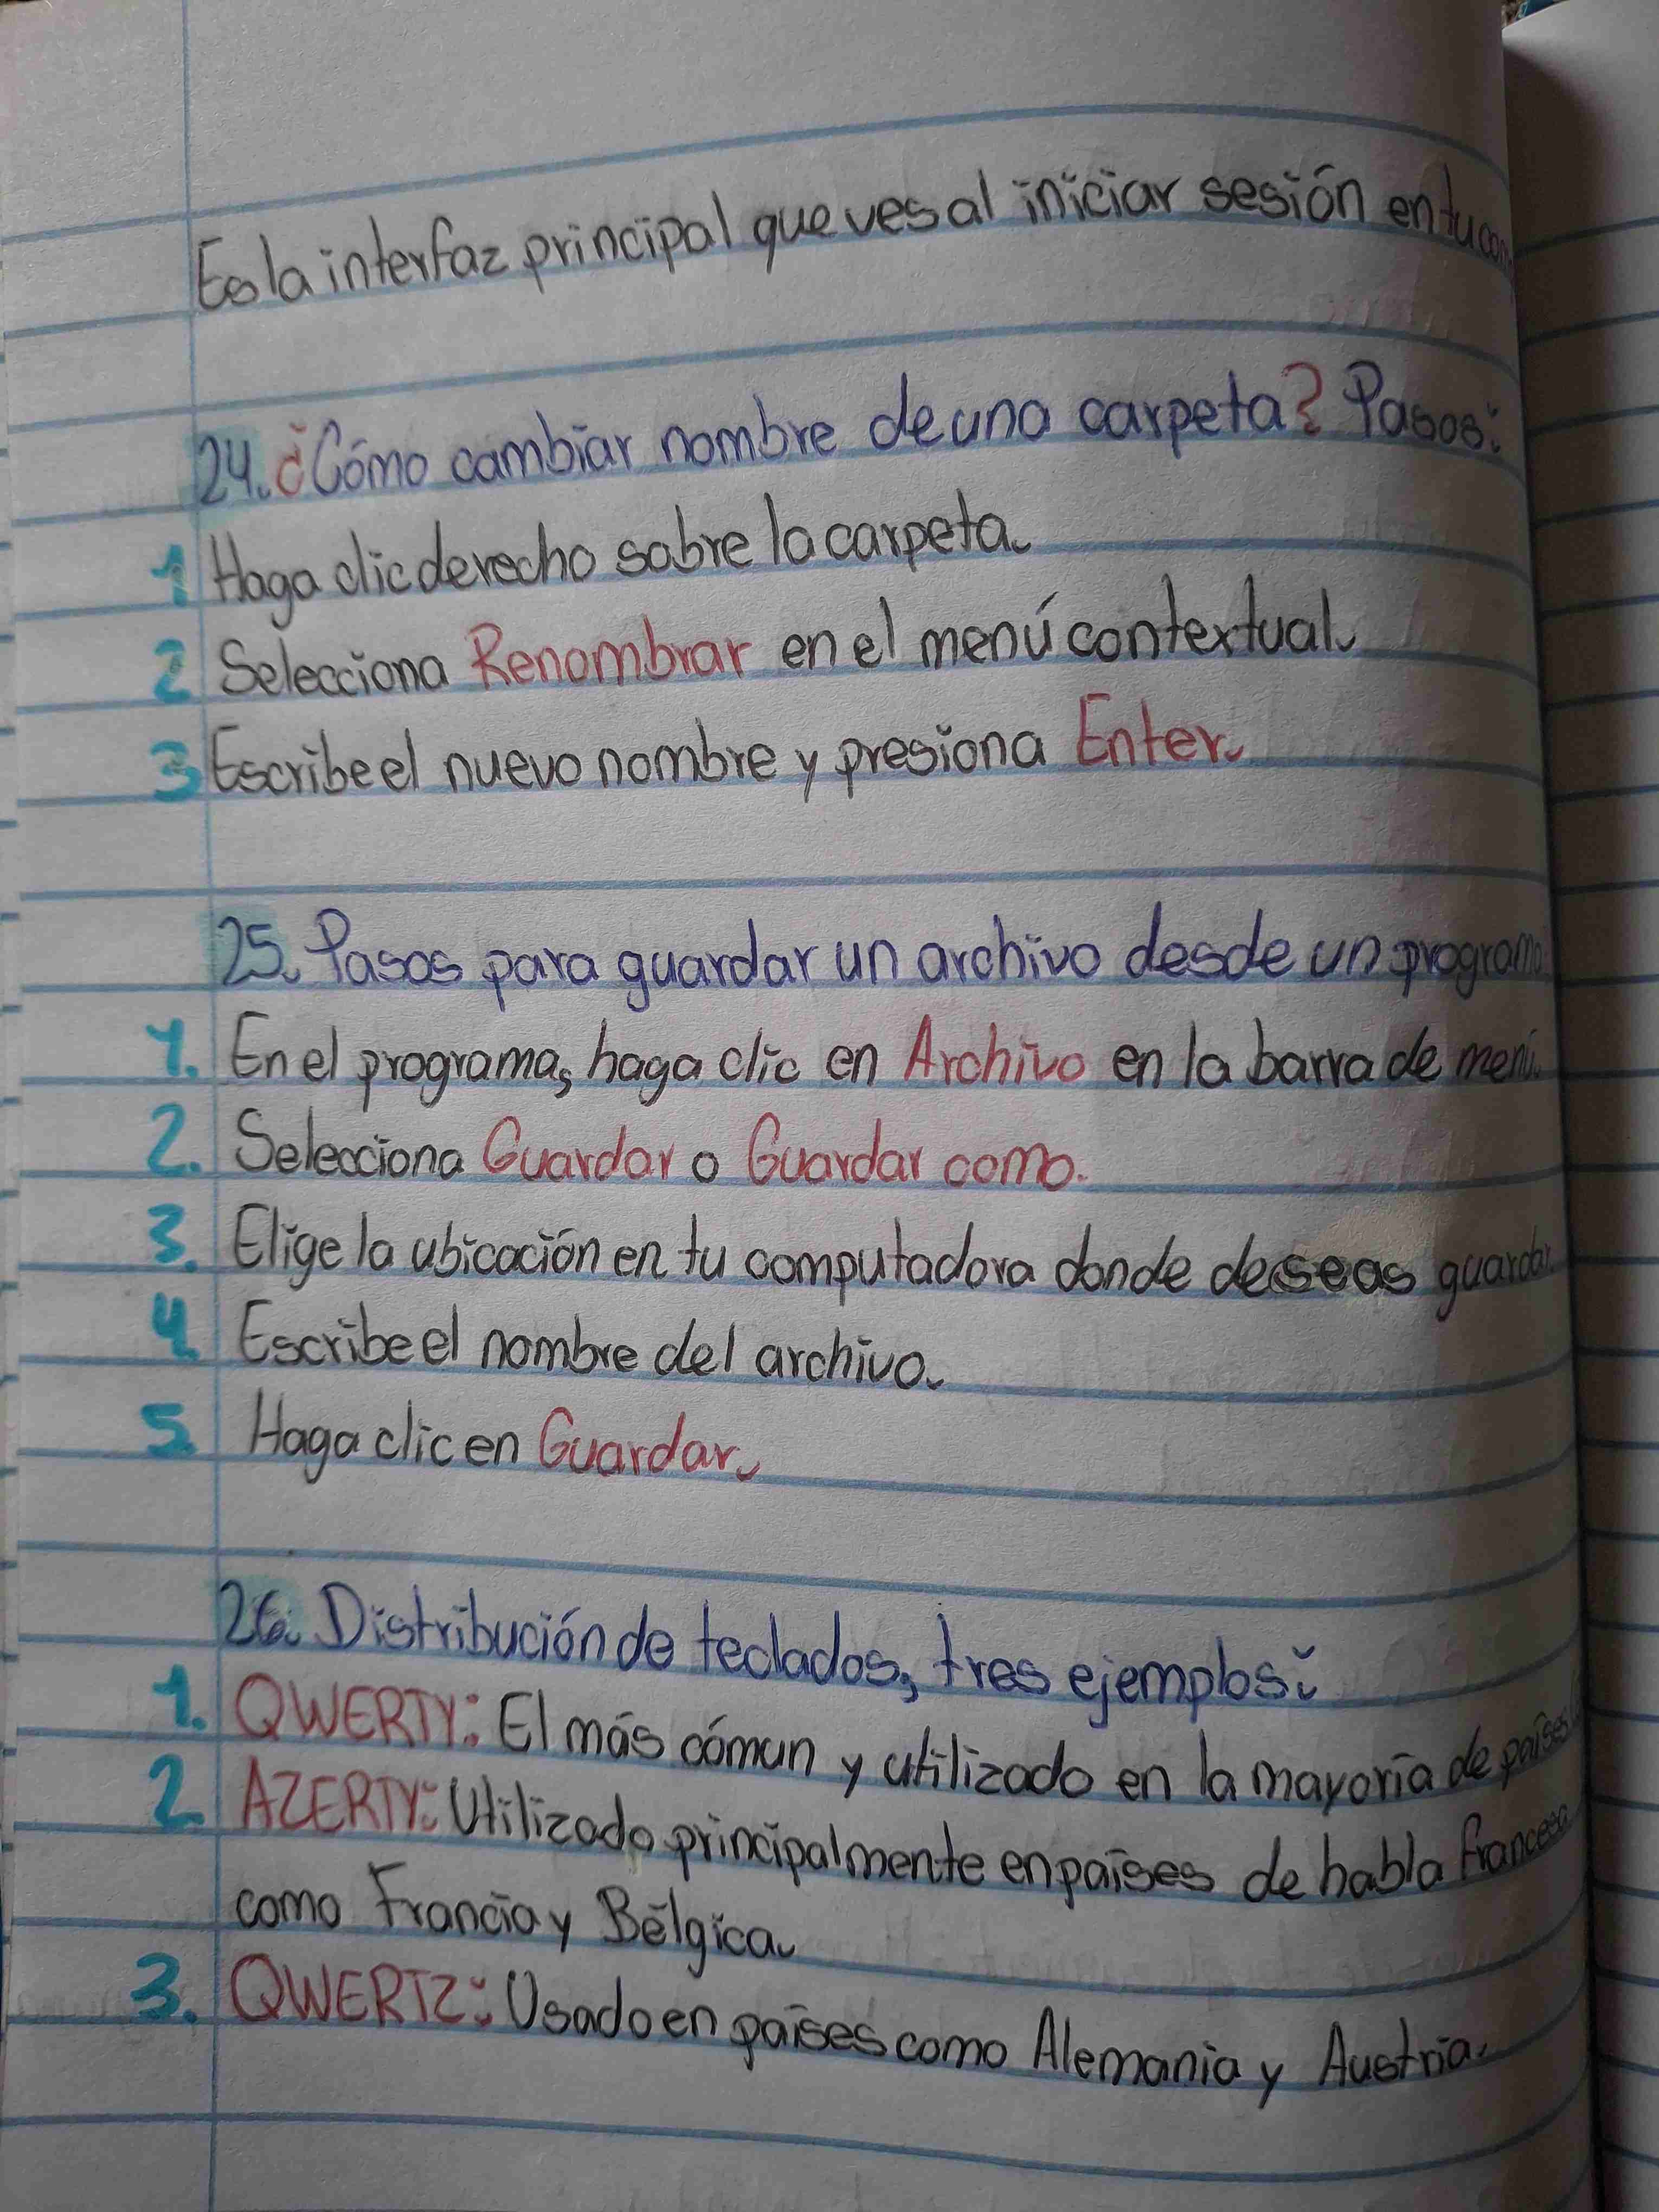 Es la interfaz principal que ves al iniciar sesión en tu
24. ¿Cómo cambiar nombre de una carpeta? Pasos:
1 Haga clic derecho sobre la carpeta.
2 Selecciona Renombrar en el menú contextual.
3 Escribe el nuevo nombre y presiona Enter.
25. Pasos para guardar un archivo desde un programa
1. En el programa, haga clic en Archivo en la barra de menú.
2. Selecciona Guardar o Guardar como.
3. Elige la ubicación en tu computadora donde deseas guardar.
4. Escribe el nombre del archivo.
5. Haga clic en Guardar.
26. Distribución de teclados, tres ejemplos:
1. QWERTY: El más cómun y utilizado en la mayoría de países
2. AZERTY: Utilizado principalmente en países de habla francesa
como Francia y Bélgica.
3. QWERTZ: Usado en países como Alemania y Austria.